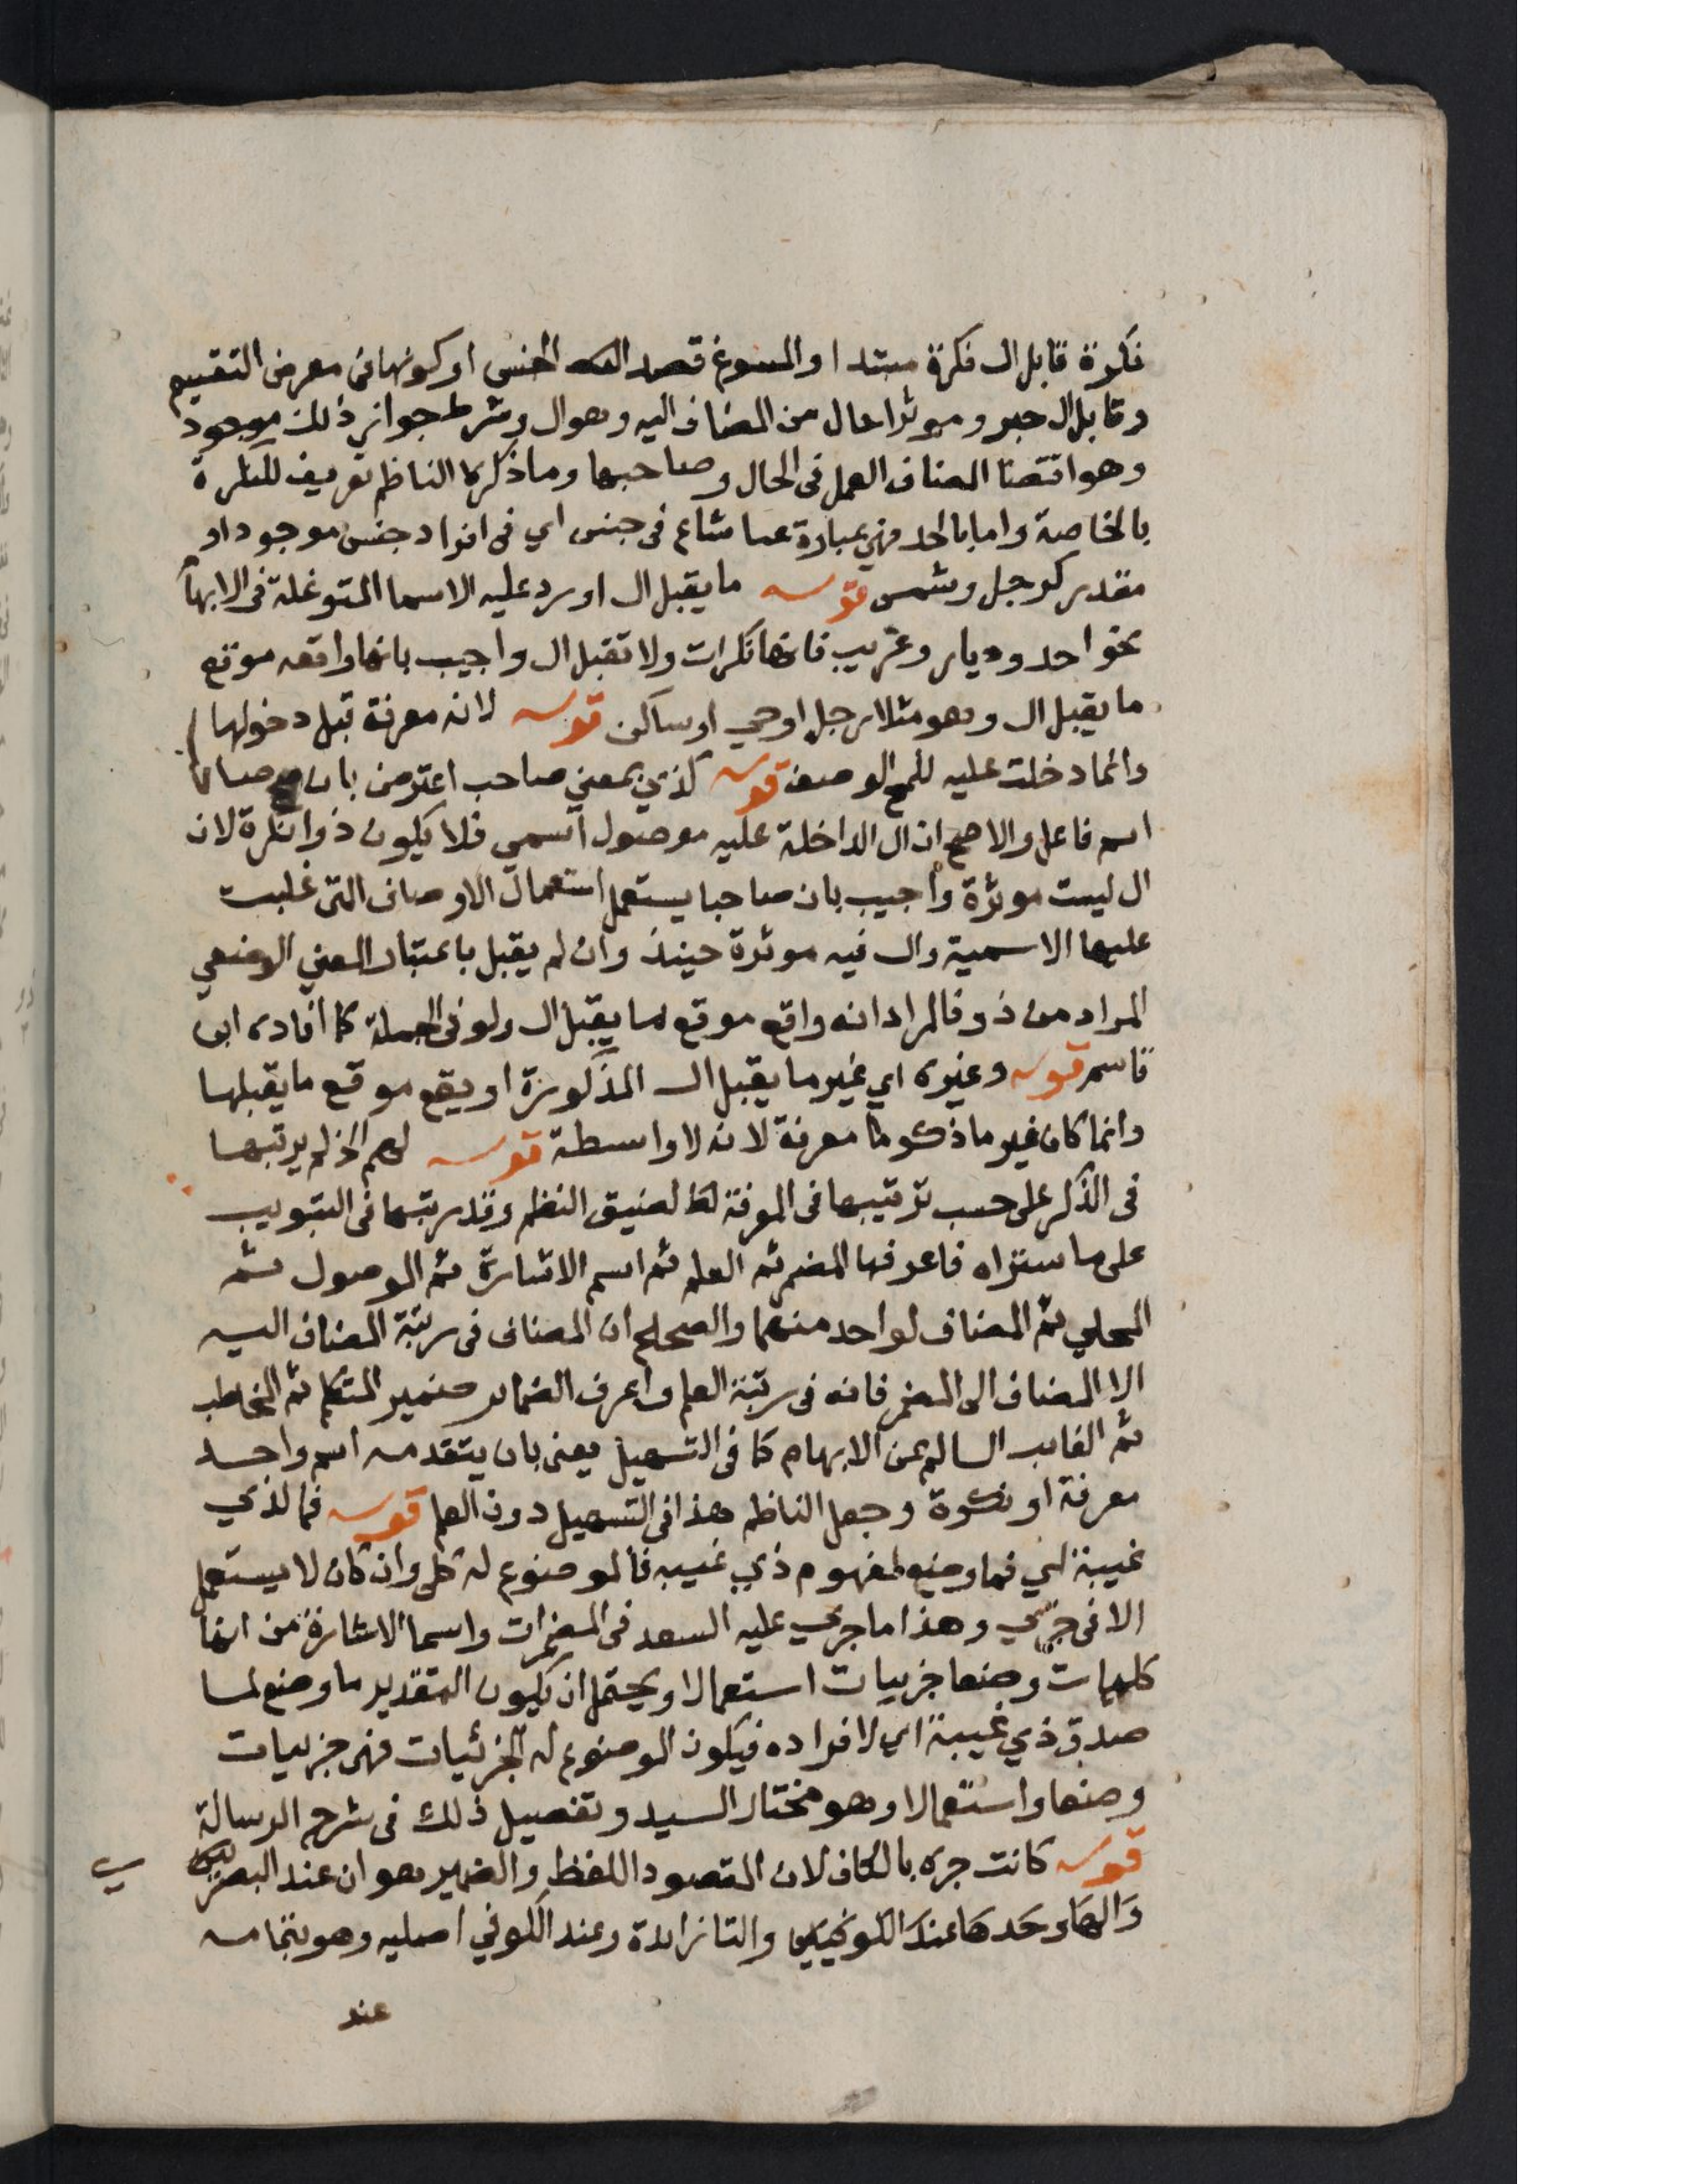 نكرة قابل ال نكرة مبتدا والمسوغ قصد الجنس او كونها في معرض التقسيم
وقابل ال خبر وموثرا حال من المضاف اليه وهو ال وشرط جواز ذلك موجود
وهو اقتضا المضاف العمل في الحال وصاحبها وما ذكره الناظم تعريف للنكرة
بالخاصة واما بالحد فهي عبارة عما شاع في جنس اي في افراد جنس موجود او
مقدر كرجل وشمس قوله ما يقبل ال اورد عليه الاسما المتوغلة في الابهام
نحو احد وديار وعريب فانها نكرات ولا تقبل ال واجيب بانها واقعه موقع
ما يقبل ال وهو مثلا رجل او حي او ساكن قوله لانه معرفة قبل دخولها
وانما دخلت عليه للمح الوصف قوله كذي بمعني صاحب اعترض بان صاحبا
اسم فاعل والاصح ان ال الداخلة عليه موصول اسمي فلا يكون ذو نكرة لان
ال ليست موثرة واجيب بان صاحبا يستعمل استعمال الاوصاف التي غلبت
عليها الاسمية وال فيه موثرة حينئذ وان لم يقبل باعتبار المعني الوضعي
المراد من ذو فالمراد انه واقع موقع ما يقبل ال ولو في الجملة كما افاده ابن
قاسم قوله وغيره اي غير ما يقبل ال المذكورة او يقع موقع ما يقبلها
وانما كان غير ما ذكر معرفة لانه لا واسطة قوله لهم الخ لم يرتبها
في الذكر على حسب ترتيبها في المعرفة لضيق النظم وقد رتبها في التبويب
على ما ستراه فاعرفها المضمر ثم العلم ثم اسم الاشارة ثم الموصول ثم
المحلي ثم المضاف لواحد منهما والصحيح ان المضاف في رتبة المضاف اليه
الا المضاف الى المضمر فانه في رتبة العلم واعرف الضماير ضمير المتكلم ثم المخاطب
ثم الغايب السالم عن الابهام كما في التسهيل يعني بان يتقدمه اسم واحد
معرفة او نكرة وجعل الناظم هذا في التسهيل دون العلم قوله فما لذي
غيبة اي فما وضع لمفهوم ذي غيبه فالموضوع له كلي وان كان لا يستعمل
الا في جزي وهذا ما جري عليه السعد في المضمرات واسما الاشارة من انها
كليات وضعا جزييات استعمالا ويحتمل ان يكون التقدير ما وضع لما
صدق ذي غيبة اي لافراده فيكون الموضوع له الجزئيات فهي جزييات
وضعا واستعمالا وهو مختار السيد وتفصيل ذلك في شرح الرسالة
قوله كانت جره بالكاف لان المقصود اللفظ والضمير هو ان عند البصريين
والها وحدها عند الكوفيين والتا زايدة وعند الكوفي اصليه وهو بتمامه
عند